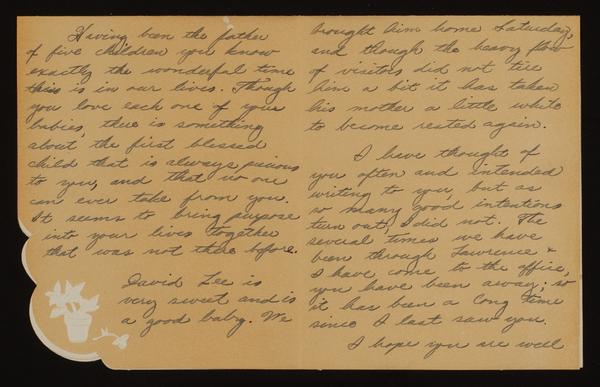 Having been the father
of five children you know
exactly the wonderful time
this is in our lives. Though
you love each one of your
babies, there is something
about the first blessed
child that is always precious
to you, and that no one
can ever take from you.
It seems to bring purpose
into your lives together
that was not there before.
David Lee is
very sweet and is
a good baby. We
brought him home Saturday,
and though the heavy flow
of visitors did not tire
him a bit it has taken
his mother a little while
to become rested again.
I have thought of
you often and intended
writing to you, but as
so many good intentions
turn out, I did not. The
several times we have
been through Lawrence &
I have come to the office,
you have been away; so
it has been a long time
since I last saw you.
I hope you are well